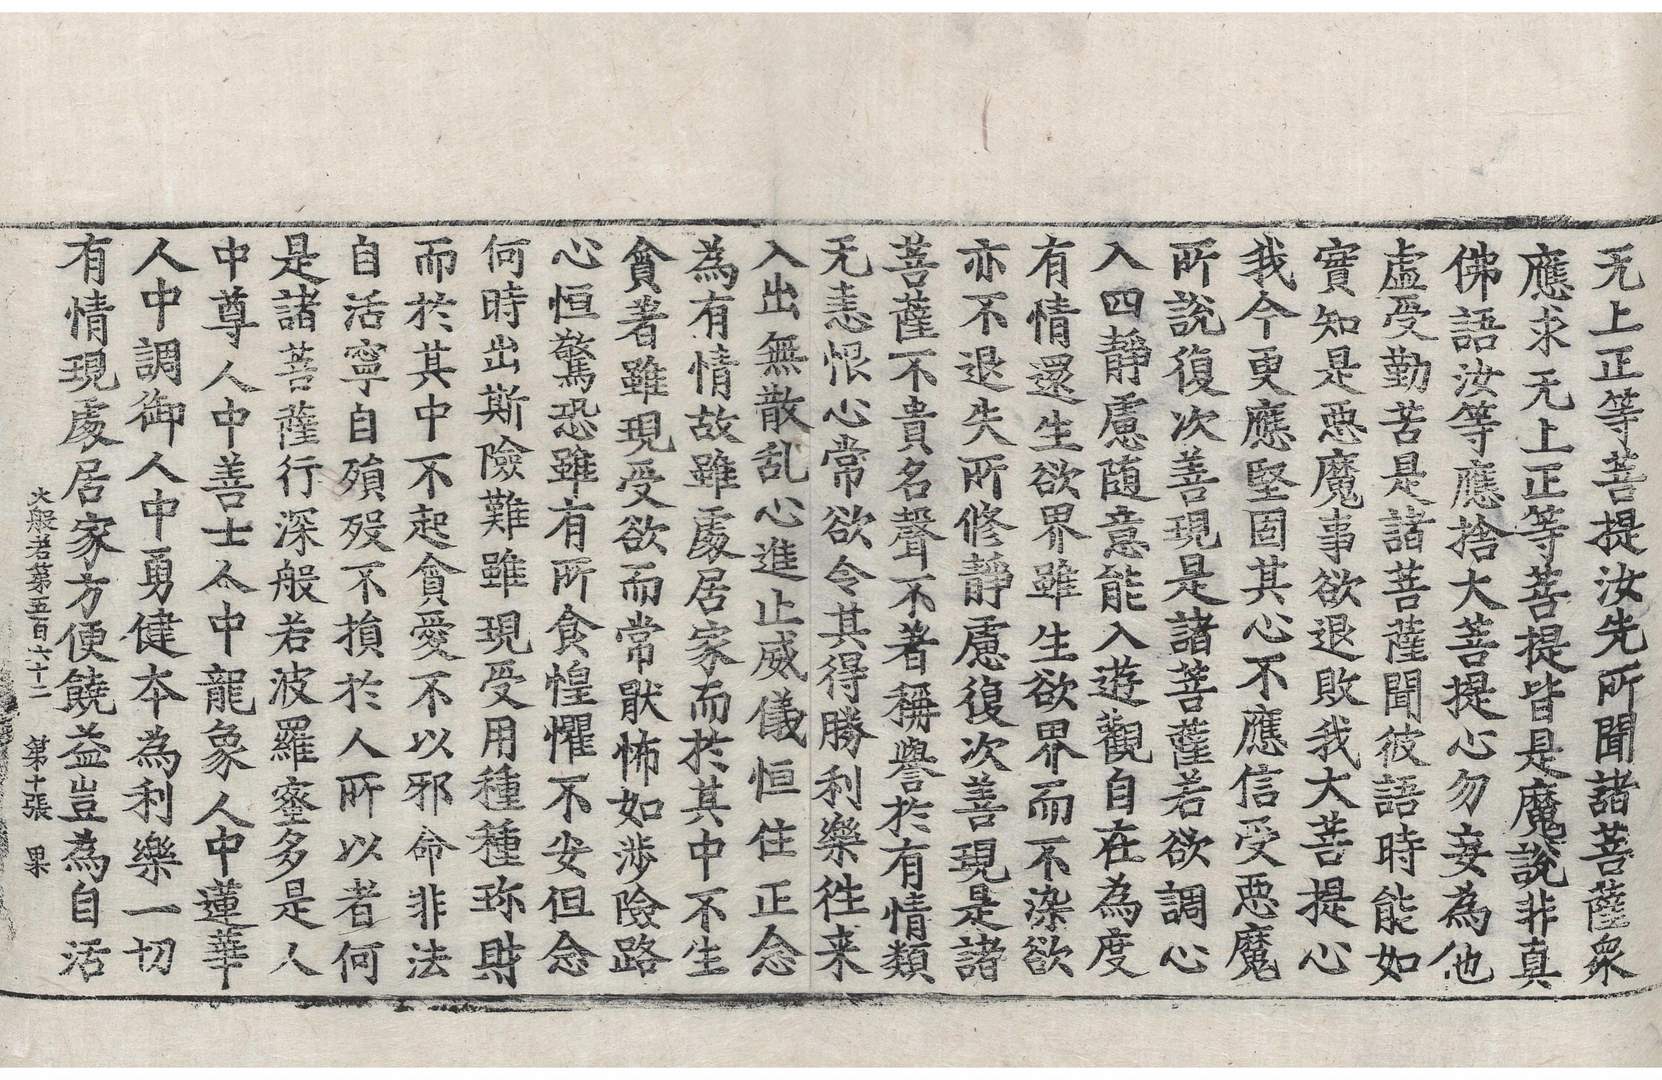 无上正等菩提汝先所聞諸菩薩衆
應求无上正等菩提皆是魔說非真
佛語汝等應捨大菩提心勿妄為他
虛受勤苦是諸菩薩聞彼語時能如
實知是惡魔事欲退敗我大菩提心
我今更應堅固其心不應信受惡魔
所說復次善現是諸菩薩若欲調心
入四靜慮隨意能入遊觀自在為度
有情還生欲界雖生欲界而不染欲
亦不退失所修靜慮復次善現是諸
菩薩不貴名聲不著稱譽於有情類
无恚恨心常欲令其得勝利樂往来
入出無散乱心進止威儀恒住正念
為有情故雖處居家而於其中不生
貪著雖現受欲而常猒怖如涉險路
心恒驚恐雖有所食惶懼不安但念
何時出斯險難雖現受用種種珎財
而於其中不起貪愛不以邪命非法
自活寧自殞歿不損於人所以者何
是諸菩薩行深般若波羅蜜多是人
中尊人中善士人中龍象人中蓮華
人中調御人中勇健本為利樂一切
有情現處居家方便饒益豈為自活
大般若第五百六十二 第十張 果